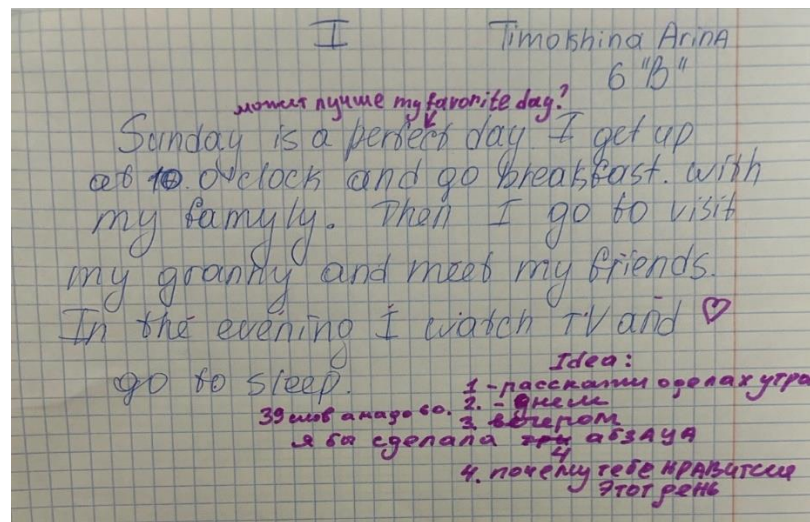 I Timokhina Arina
6 "B"
может лучше my favorite day?
Sunday is a perfect day. I get up
at 10. o'clock and go breakfast. with
my famyly. Then I go to visit
my granny and meet my friends.
In the evening I watch TV and
go to sleep.
Idea:
1 - расскажи о делах утра
39 слов а надо 60. 2. - днем
3. вечером
я бы сделала три 4 абзаца
4. почему тебе нравится
этот день